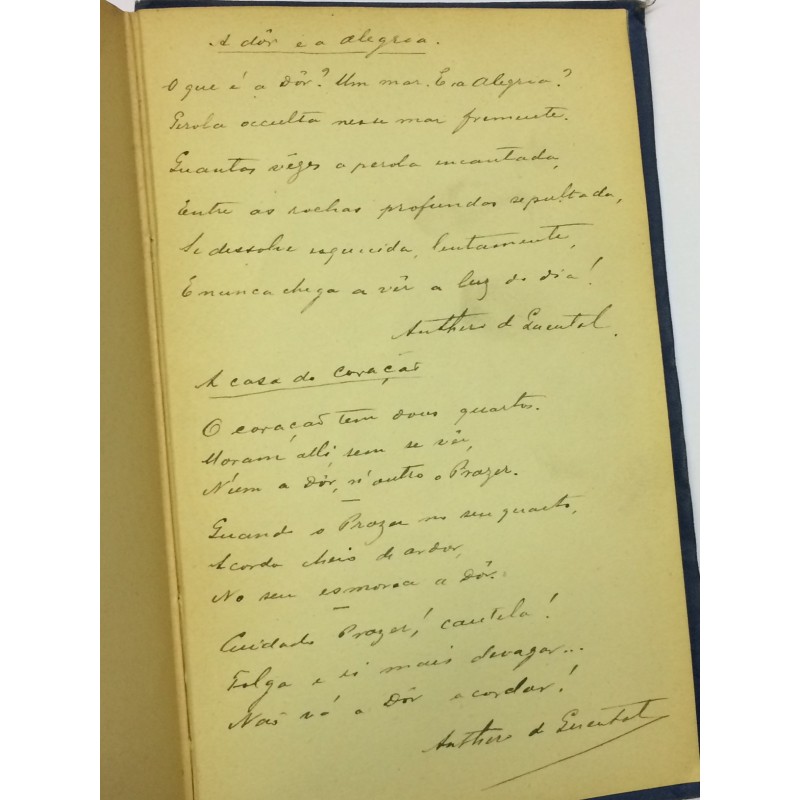 A dôr e a alegria.
O que é a Dôr? Um mar. E a Alegria?
Perola occulta nesse mar fremente.
Quantas vêzes a perola encantada,
Entre as rochas profundas sepultada,
Se dissolve esquecida, lentamente,
E nunca chega a vêr a luz do dia!
Anthero de Quental.
A casa do coração
O coração tem dous quartos.
Moram alli sem se vêr,
N'um a Dôr, n'outro o Prazer.
Quando o Prazer no seu quarto,
Acorda cheio de ardor,
No seu esmorece a Dôr.
Cuidado Prazer! cautela!
Folga e ri mais devagar...
Não vá a Dôr acordar!
Anthero de Quental